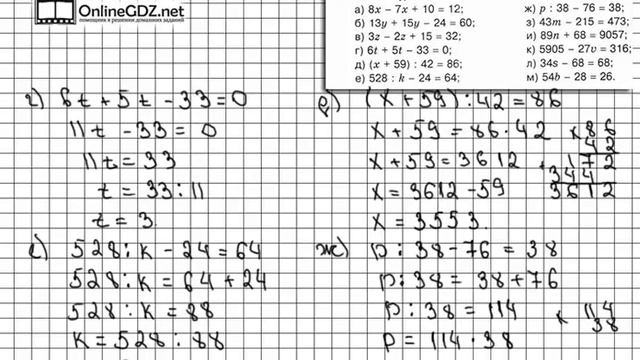 OnlineGDZ.net
помощник в решении домашних заданий
а) 8x − 7x + 10 = 12;
б) 13y + 15y − 24 = 60;
в) 3z − 2z + 15 = 32;
г) 6t + 5t − 33 = 0;
д) (x + 59) : 42 = 86;
е) 528 : k − 24 = 64;
ж) p : 38 − 76 = 38;
з) 43m − 215 = 473;
и) 89n + 68 = 9057;
к) 5905 − 27v = 316;
л) 34s − 68 = 68;
м) 54b − 28 = 26.
г) 6t + 5t − 33 = 0
11t − 33 = 0
11t = 33
t = 33 : 11
t = 3.
д) (x + 59) : 42 = 86
x + 59 = 86 · 42
x + 59 = 3612
x = 3612 − 59
x = 3553.
× 86
42
+ 172
344
3612
е) 528 : k − 24 = 64
528 : k = 64 + 24
528 : k = 88
k = 528 : 88
ж) p : 38 − 76 = 38
p : 38 = 38 + 76
p : 38 = 114
p = 114 · 38
× 114
38